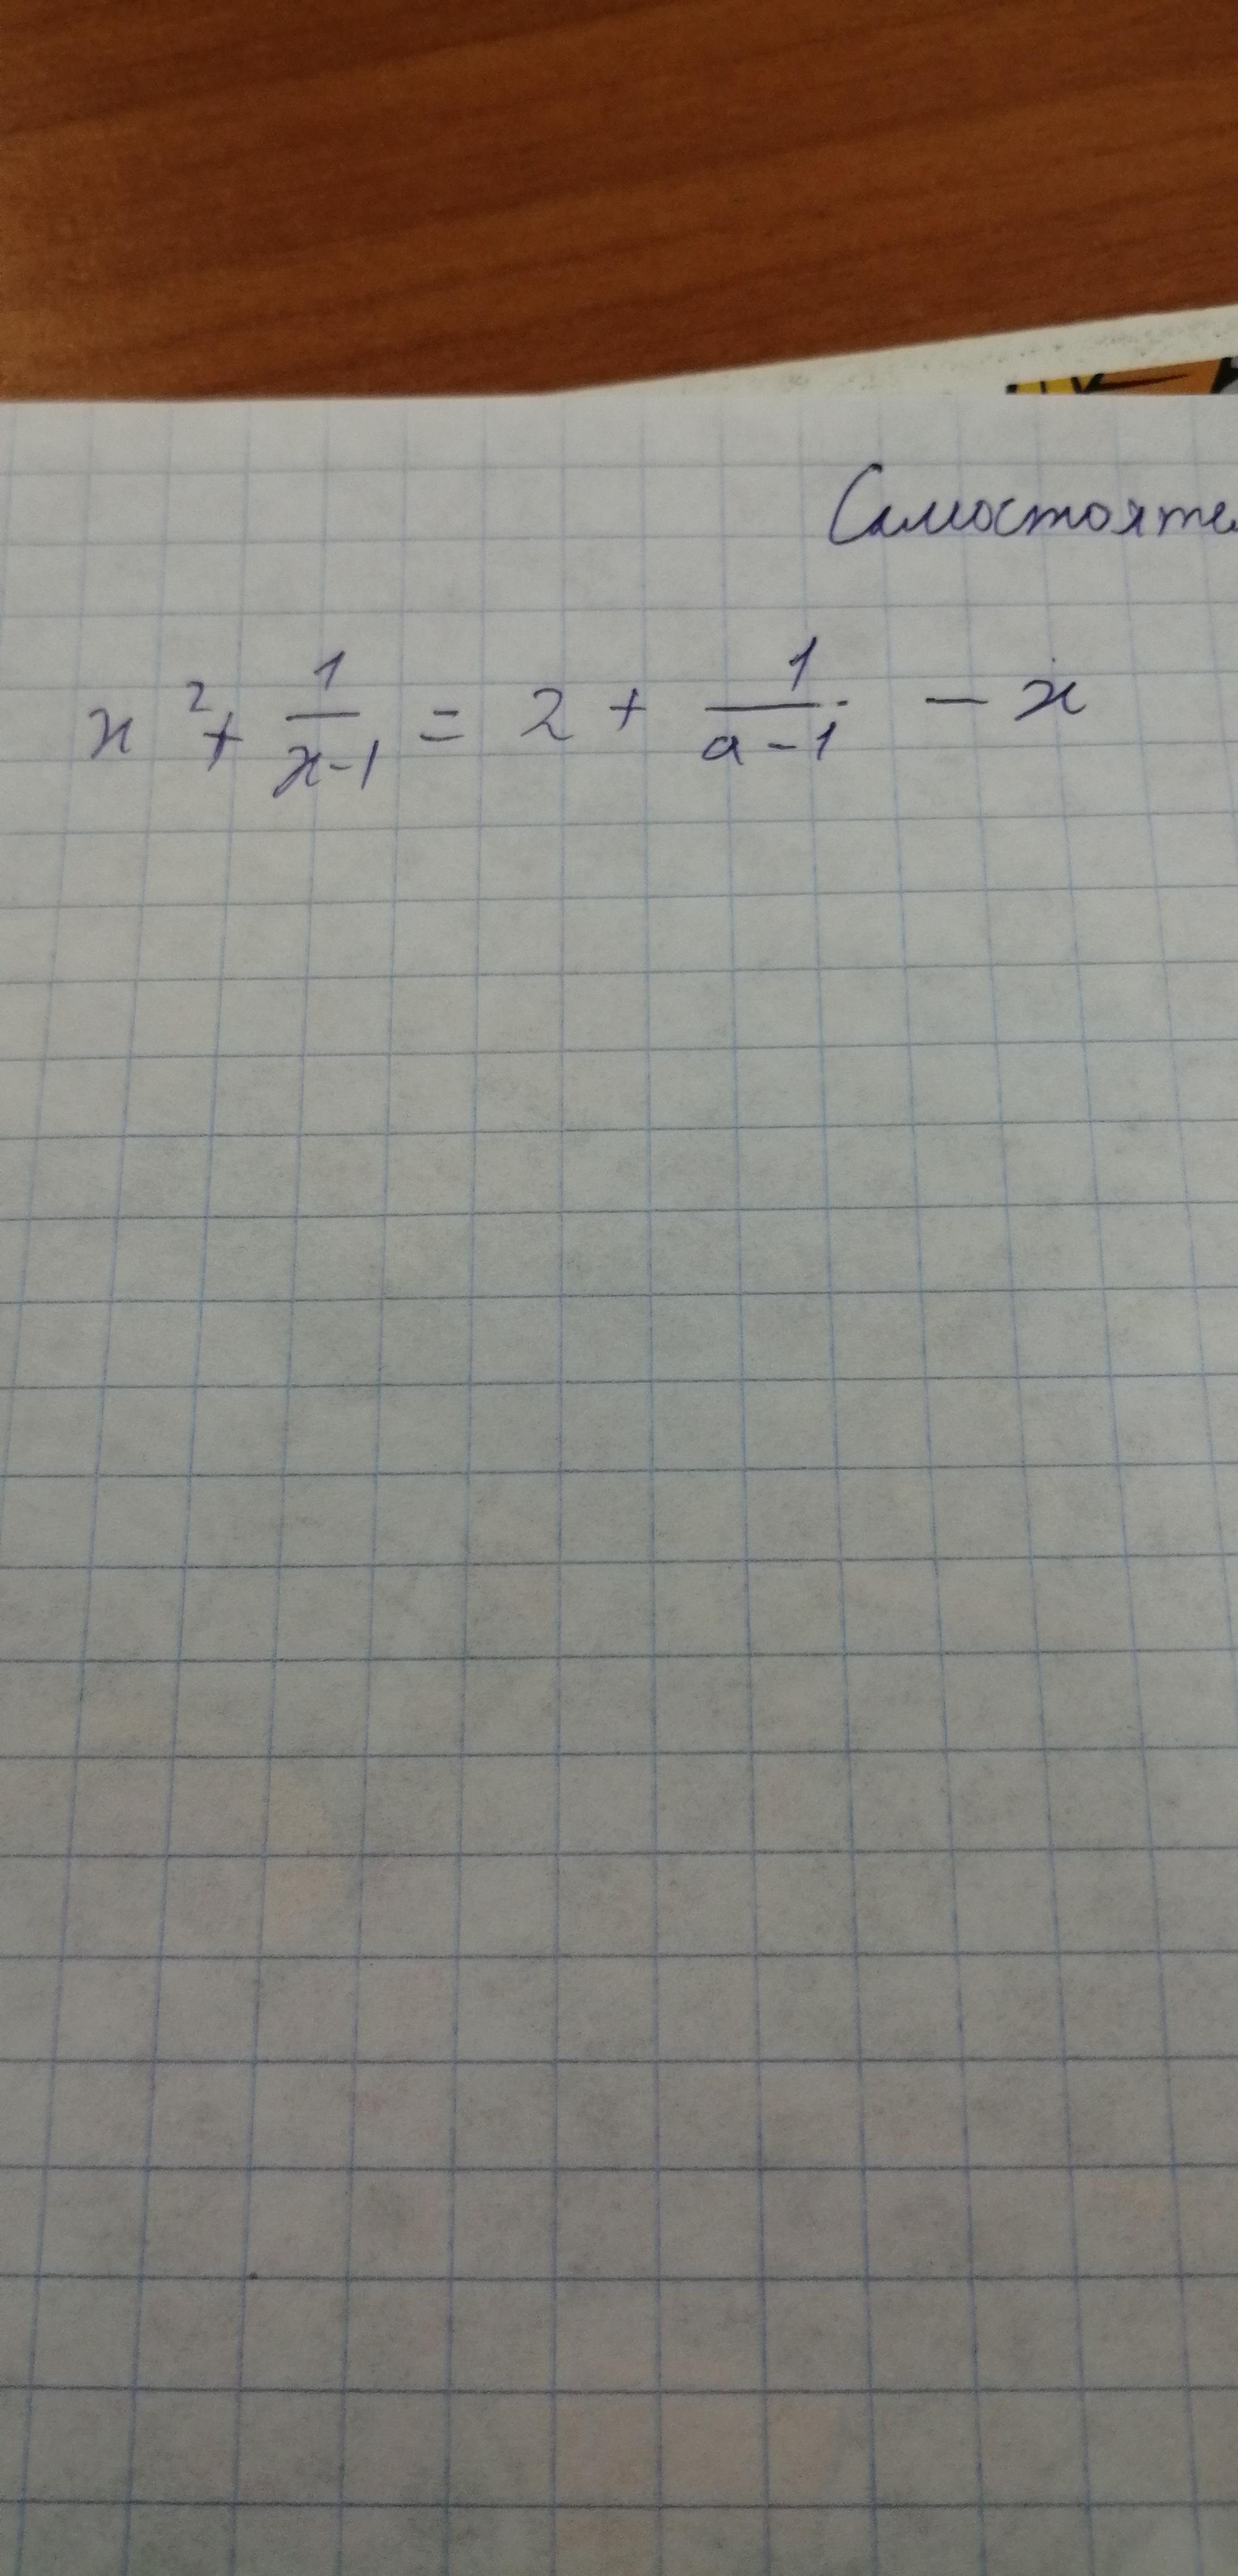 Самостояте
x² + 1/(x-1) = 2 + 1/(a-1) - x